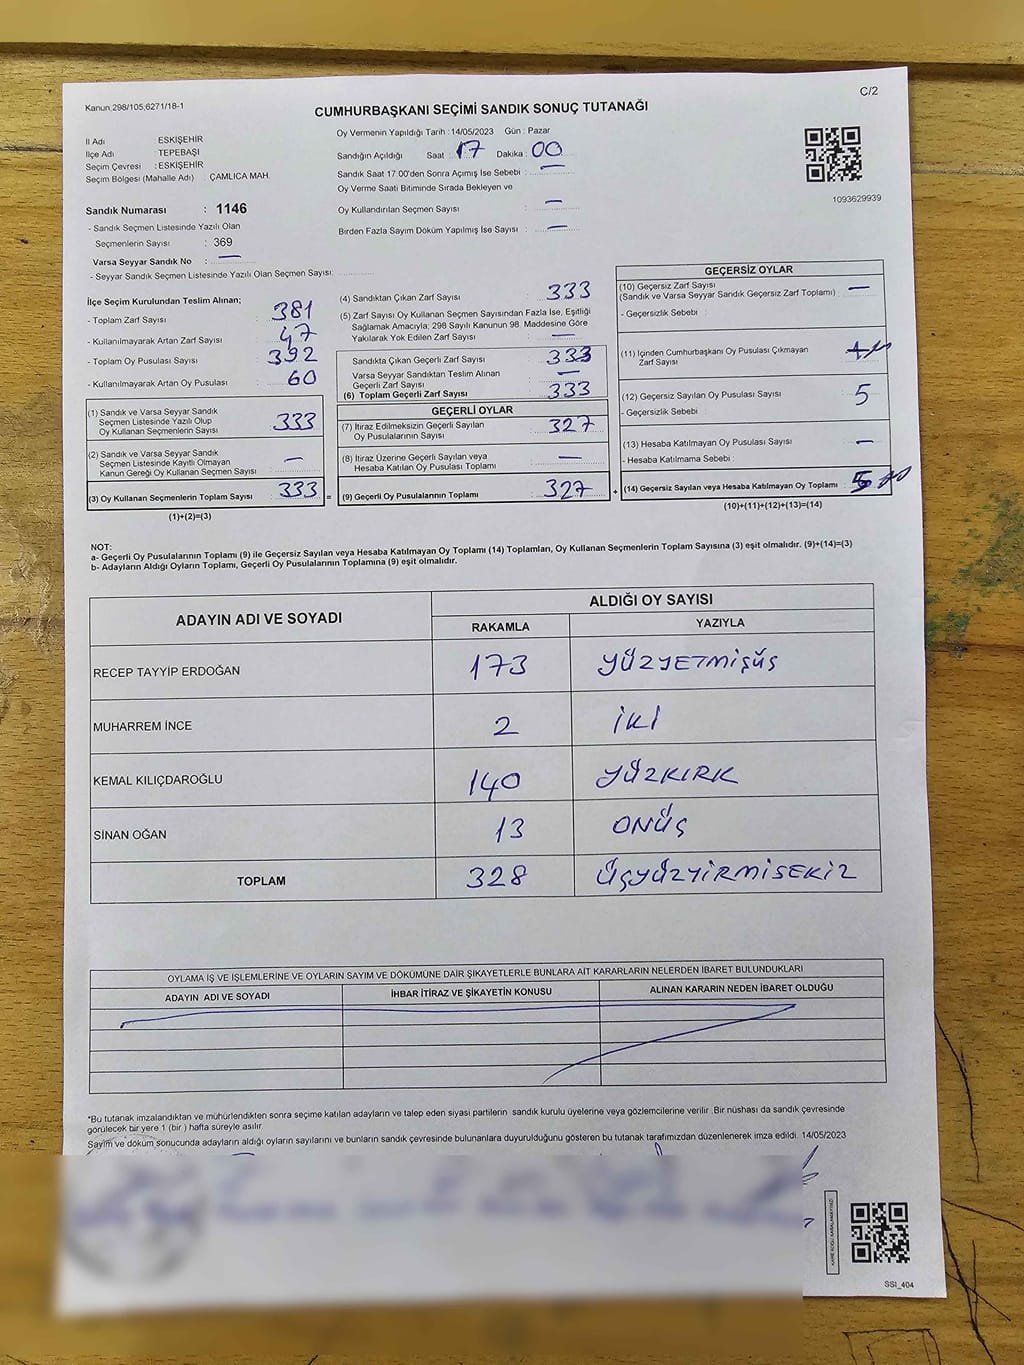 Kanun,298/105;6271/18-1
C/2
CUMHURBAŞKANI SEÇİMİ SANDIK SONUÇ TUTANAĞI
İl Adı : ESKİŞEHİR
İlçe Adı : TEPEBAŞI
Seçim Çevresi : ESKİŞEHİR
Seçim Bölgesi (Mahalle Adı) : ÇAMLICA MAH.
Sandık Numarası : 1146
- Sandık Seçmen Listesinde Yazılı Olan
Seçmenlerin Sayısı : 369
Varsa Seyyar Sandık No : —
- Seyyar Sandık Seçmen Listesinde Yazılı Olan Seçmen Sayısı:
Oy Vermenin Yapıldığı Tarih : 14/05/2023 Gün : Pazar
Sandığın Açıldığı Saat : 17 Dakika : 00
Sandık Saat 17.00'den Sonra Açımış İse Sebebi : —
Oy Verme Saati Bitiminde Sırada Bekleyen ve
Oy Kullandırılan Seçmen Sayısı : —
Birden Fazla Sayım Döküm Yapılmış İse Sayısı : —
1093629939
İlçe Seçim Kurulundan Teslim Alınan;
- Toplam Zarf Sayısı : 381
- Kullanılmayarak Artan Zarf Sayısı : 47
- Toplam Oy Pusulası Sayısı : 392
- Kullanılmayarak Artan Oy Pusulası : 60
(1) Sandık ve Varsa Seyyar Sandık
Seçmen Listesinde Yazılı Olup
Oy Kullanan Seçmenlerin Sayısı : 333
(2) Sandık ve Varsa Seyyar Sandık
Seçmen Listesinde Kayıtlı Olmayan
Kanun Gereği Oy Kullanan Seçmen Sayısı : —
(3) Oy Kullanan Seçmenlerin Toplam Sayısı : 333 =
(1)+(2)=(3)
(4) Sandıktan Çıkan Zarf Sayısı : 333
(5) Zarf Sayısı Oy Kullanan Seçmen Sayısından Fazla İse, Eşitliği
Sağlamak Amacıyla; 298 Sayılı Kanunun 98. Maddesine Göre
Yakılarak Yok Edilen Zarf Sayısı : —
Sandıkta Çıkan Geçerli Zarf Sayısı : 333
Varsa Seyyar Sandıktan Teslim Alınan
Geçerli Zarf Sayısı : —
(6) Toplam Geçerli Zarf Sayısı : 333
GEÇERLİ OYLAR
(7) İtiraz Edilmeksizin Geçerli Sayılan
Oy Pusulalarının Sayısı : 327
(8) İtiraz Üzerine Geçerli Sayılan veya
Hesaba Katılan Oy Pusulası Toplamı : —
(9) Geçerli Oy Pusulalarının Toplamı : 327 +
GEÇERSİZ OYLAR
(10) Geçersiz Zarf Sayısı : —
(Sandık ve Varsa Seyyar Sandık Geçersiz Zarf Toplamı)
- Geçersizlik Sebebi :
(11) İçinden Cumhurbaşkanı Oy Pusulası Çıkmayan
Zarf Sayısı
(12) Geçersiz Sayılan Oy Pusulası Sayısı : 5
- Geçersizlik Sebebi :
(13) Hesaba Katılmayan Oy Pusulası Sayısı : —
- Hesaba Katılmama Sebebi :
(14) Geçersiz Sayılan veya Hesaba Katılmayan Oy Toplamı :
(10)+(11)+(12)+(13)=(14)
NOT:
a- Geçerli Oy Pusulalarının Toplamı (9) ile Geçersiz Sayılan veya Hesaba Katılmayan Oy Toplamı (14) Toplamları, Oy Kullanan Seçmenlerin Toplam Sayısına (3) eşit olmalıdır. (9)+(14)=(3)
b- Adayların Aldığı Oyların Toplamı, Geçerli Oy Pusulalarının Toplamına (9) eşit olmalıdır.
ADAYIN ADI VE SOYADI
ALDIĞI OY SAYISI
RAKAMLA YAZIYLA
RECEP TAYYİP ERDOĞAN 173 YÜZYETMİŞÜŞ
MUHARREM İNCE 2 İKİ
KEMAL KILIÇDAROĞLU 140 YÜZKIRK
SİNAN OĞAN 13 ONÜÇ
TOPLAM 328 ÜÇYÜZYİRMİSEKİZ
OYLAMA İŞ VE İŞLEMLERİNE VE OYLARIN SAYIM VE DÖKÜMÜNE DAİR ŞİKAYETLERLE BUNLARA AİT KARARLARIN NELERDEN İBARET BULUNDUKLARI
ADAYIN ADI VE SOYADI İHBAR İTİRAZ VE ŞİKAYETİN KONUSU ALINAN KARARIN NEDEN İBARET OLDUĞU
*Bu tutanak imzalandıktan ve mühürlendikten sonra seçime katılan adayların ve talep eden siyasi partilerin sandık kurulu üyelerine veya gözlemcilerine verilir .Bir nüshası da sandık çevresinde
görülecek bir yere 1 (bir ) hafta süreyle asılır.
Sayım ve döküm sonucunda adayların aldığı oyların sayılarını ve bunların sandık çevresinde bulunanlara duyurulduğunu gösteren bu tutanak tarafımızdan düzenlenerek imza edildi. 14/05/2023
SSI_404